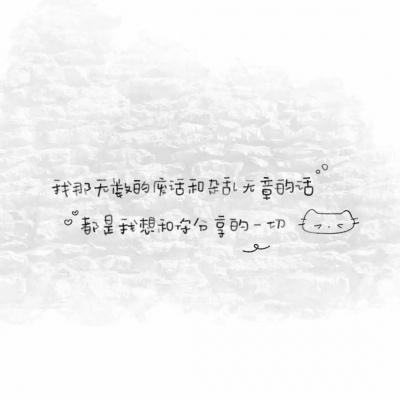 我那无数的废话和杂乱无章的话
都是我想和你分享的一切